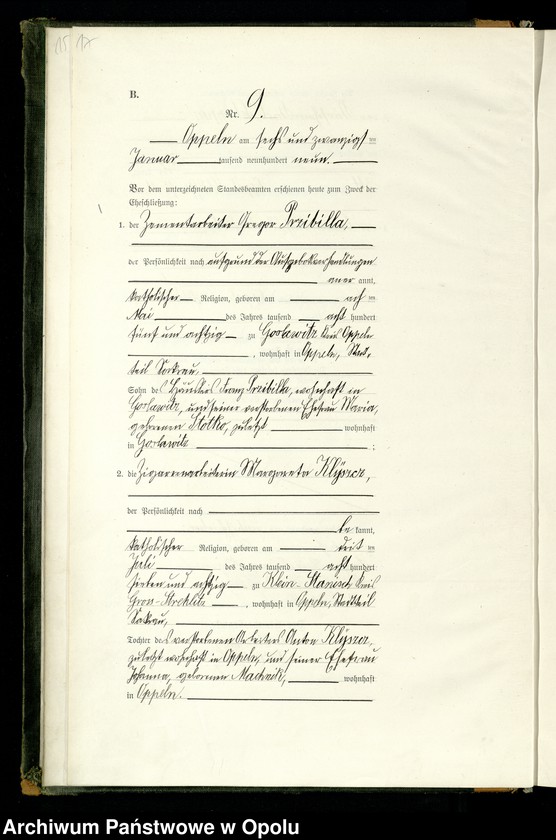 15 17
B.
Nr. 9.
Oppeln am sechs und zwanzigsten
Januar tausend neunhundert neun.
Vor dem unterzeichneten Standesbeamten erschienen heute zum Zweck der
Eheschließung:
1. der Zementarbeiter Gregor Przibilla,
der Persönlichkeit nach auf grund der Aufgebotsverhandlungen
aner kannt,
katholischer Religion, geboren am ach ten
Mai des Jahres tausend acht hundert
fünf und achtzig zu Goslawitz Kreis Oppeln
, wohnhaft in Oppeln, Stadt-
teil Sakrau,
Sohn des Häuslers Franz Przibilla, wohnhaft in
Goslawitz, und seiner verstorbenen Ehefrau Maria,
geborenen Slotko, zuletzt wohnhaft
in Goslawitz ;
2. die Zigarrenarbeiterin Margareta Klyszcz,
der Persönlichkeit nach
be kannt,
katholischer Religion, geboren am drit ten
Juli des Jahres tausend acht hundert
sieben und achtzig zu Klein-Stanisch Kreis
Gross-Strehlitz , wohnhaft in Oppeln, Stadtteil
Sakrau,
Tochter des verstorbenen Anton Klyszcz,
zuletzt wohnhaft in Oppeln, und seiner Ehefrau
Johanna, geborenen Machnik, wohnhaft
in Oppeln.
Archiwum Państwowe w Opolu